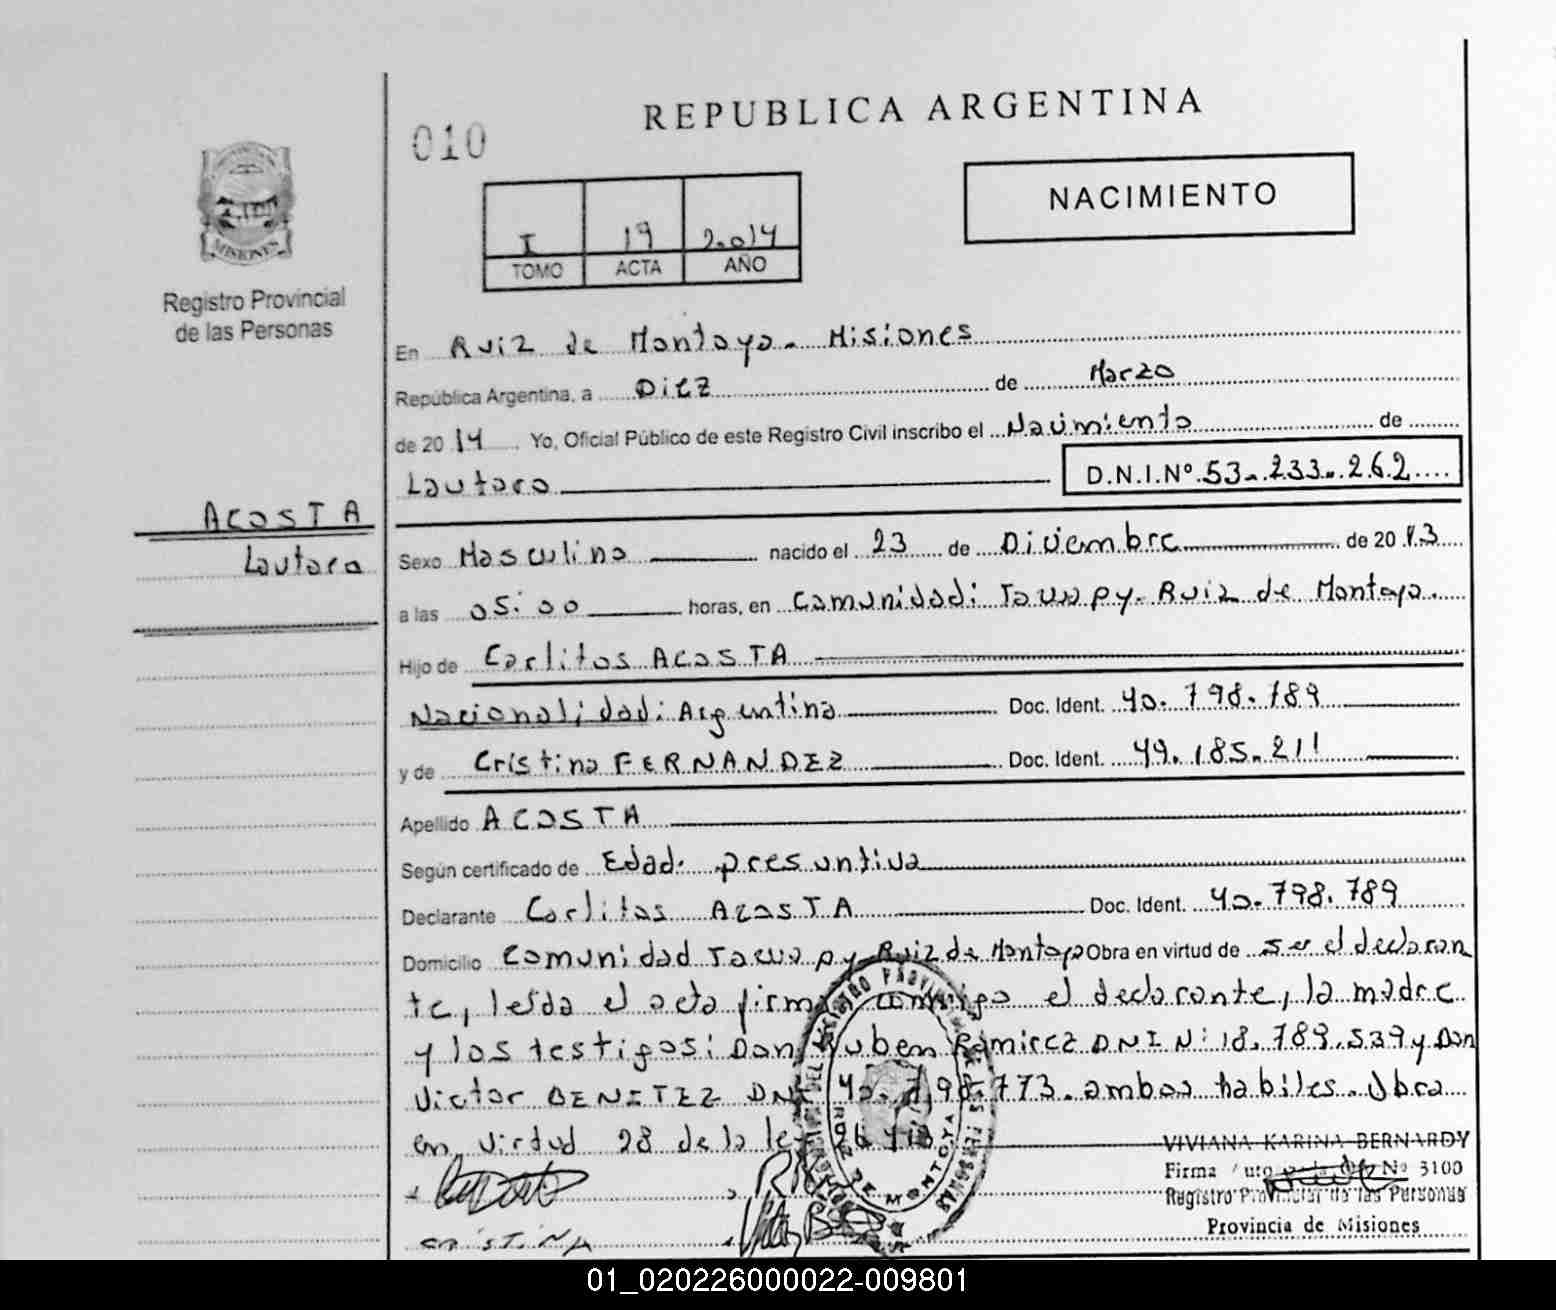 REPUBLICA ARGENTINA
010
NACIMIENTO
I 19 2.014
TOMO ACTA AÑO
MISIONES
Registro Provincial
de las Personas
En Ruiz de Montoya. Misiones
República Argentina, a Diez de Marzo
de 2014 Yo, Oficial Público de este Registro Civil inscribo el Nacimiento de
Lautaro D.N.I.Nº 53.233.262
ACOSTA
Lautaro
Sexo Masculino nacido el 23 de Diciembre de 2013
a las 05:00 horas, en Comunidad: Tacuapy. Ruiz de Montoya.
Hijo de Carlitos ACOSTA
Nacionalidad: Argentina Doc. Ident. 40.798.789
y de Cristina FERNANDEZ Doc. Ident. 49.185.211
Apellido ACOSTA
Según certificado de Edad presuntiva
Declarante Carlitos ACOSTA Doc. Ident. 40.798.789
Domicilio Comunidad Tacuapy Ruiz de Montoya Obra en virtud de ser el declaran
te, leída el acta firma conmigo el declarante, la madre
y los testigos: Don Ruben Ramirez DNI N: 18.789.539 y Don
Victor BENITEZ DNI 40.798.773. ambos habiles. Obra
en virtud 28 de la ley
VIVIANA KARINA BERNARDY
Firma Nº 3100
Registro Provincial de las Personas
Provincia de Misiones
CRISTINA
RUIZ DE MONTOYA
01_020226000022-009801